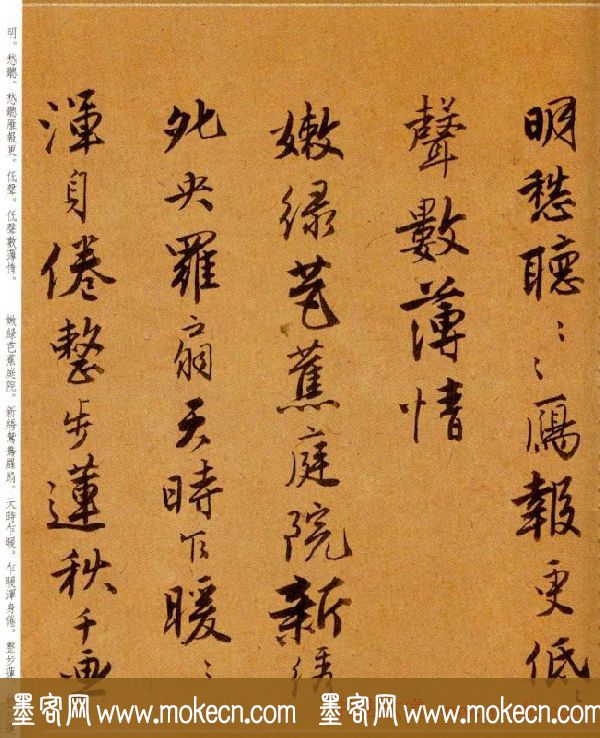 明愁聽〻〻鴈報更低〻
聲數薄情
嫩綠芭蕉庭院新綉
夗央羅扇天時乍暖〻
渾身倦整步蓮秋千畫
明。愁聽。愁聽雁報更。低聲。低聲數薄情。 嫩綠芭蕉庭院。新綉鴛鴦羅扇。天時乍暖。乍暖渾身倦。整步蓮
墨客网 www.mokecn.com 墨客网 www.mokecn.com